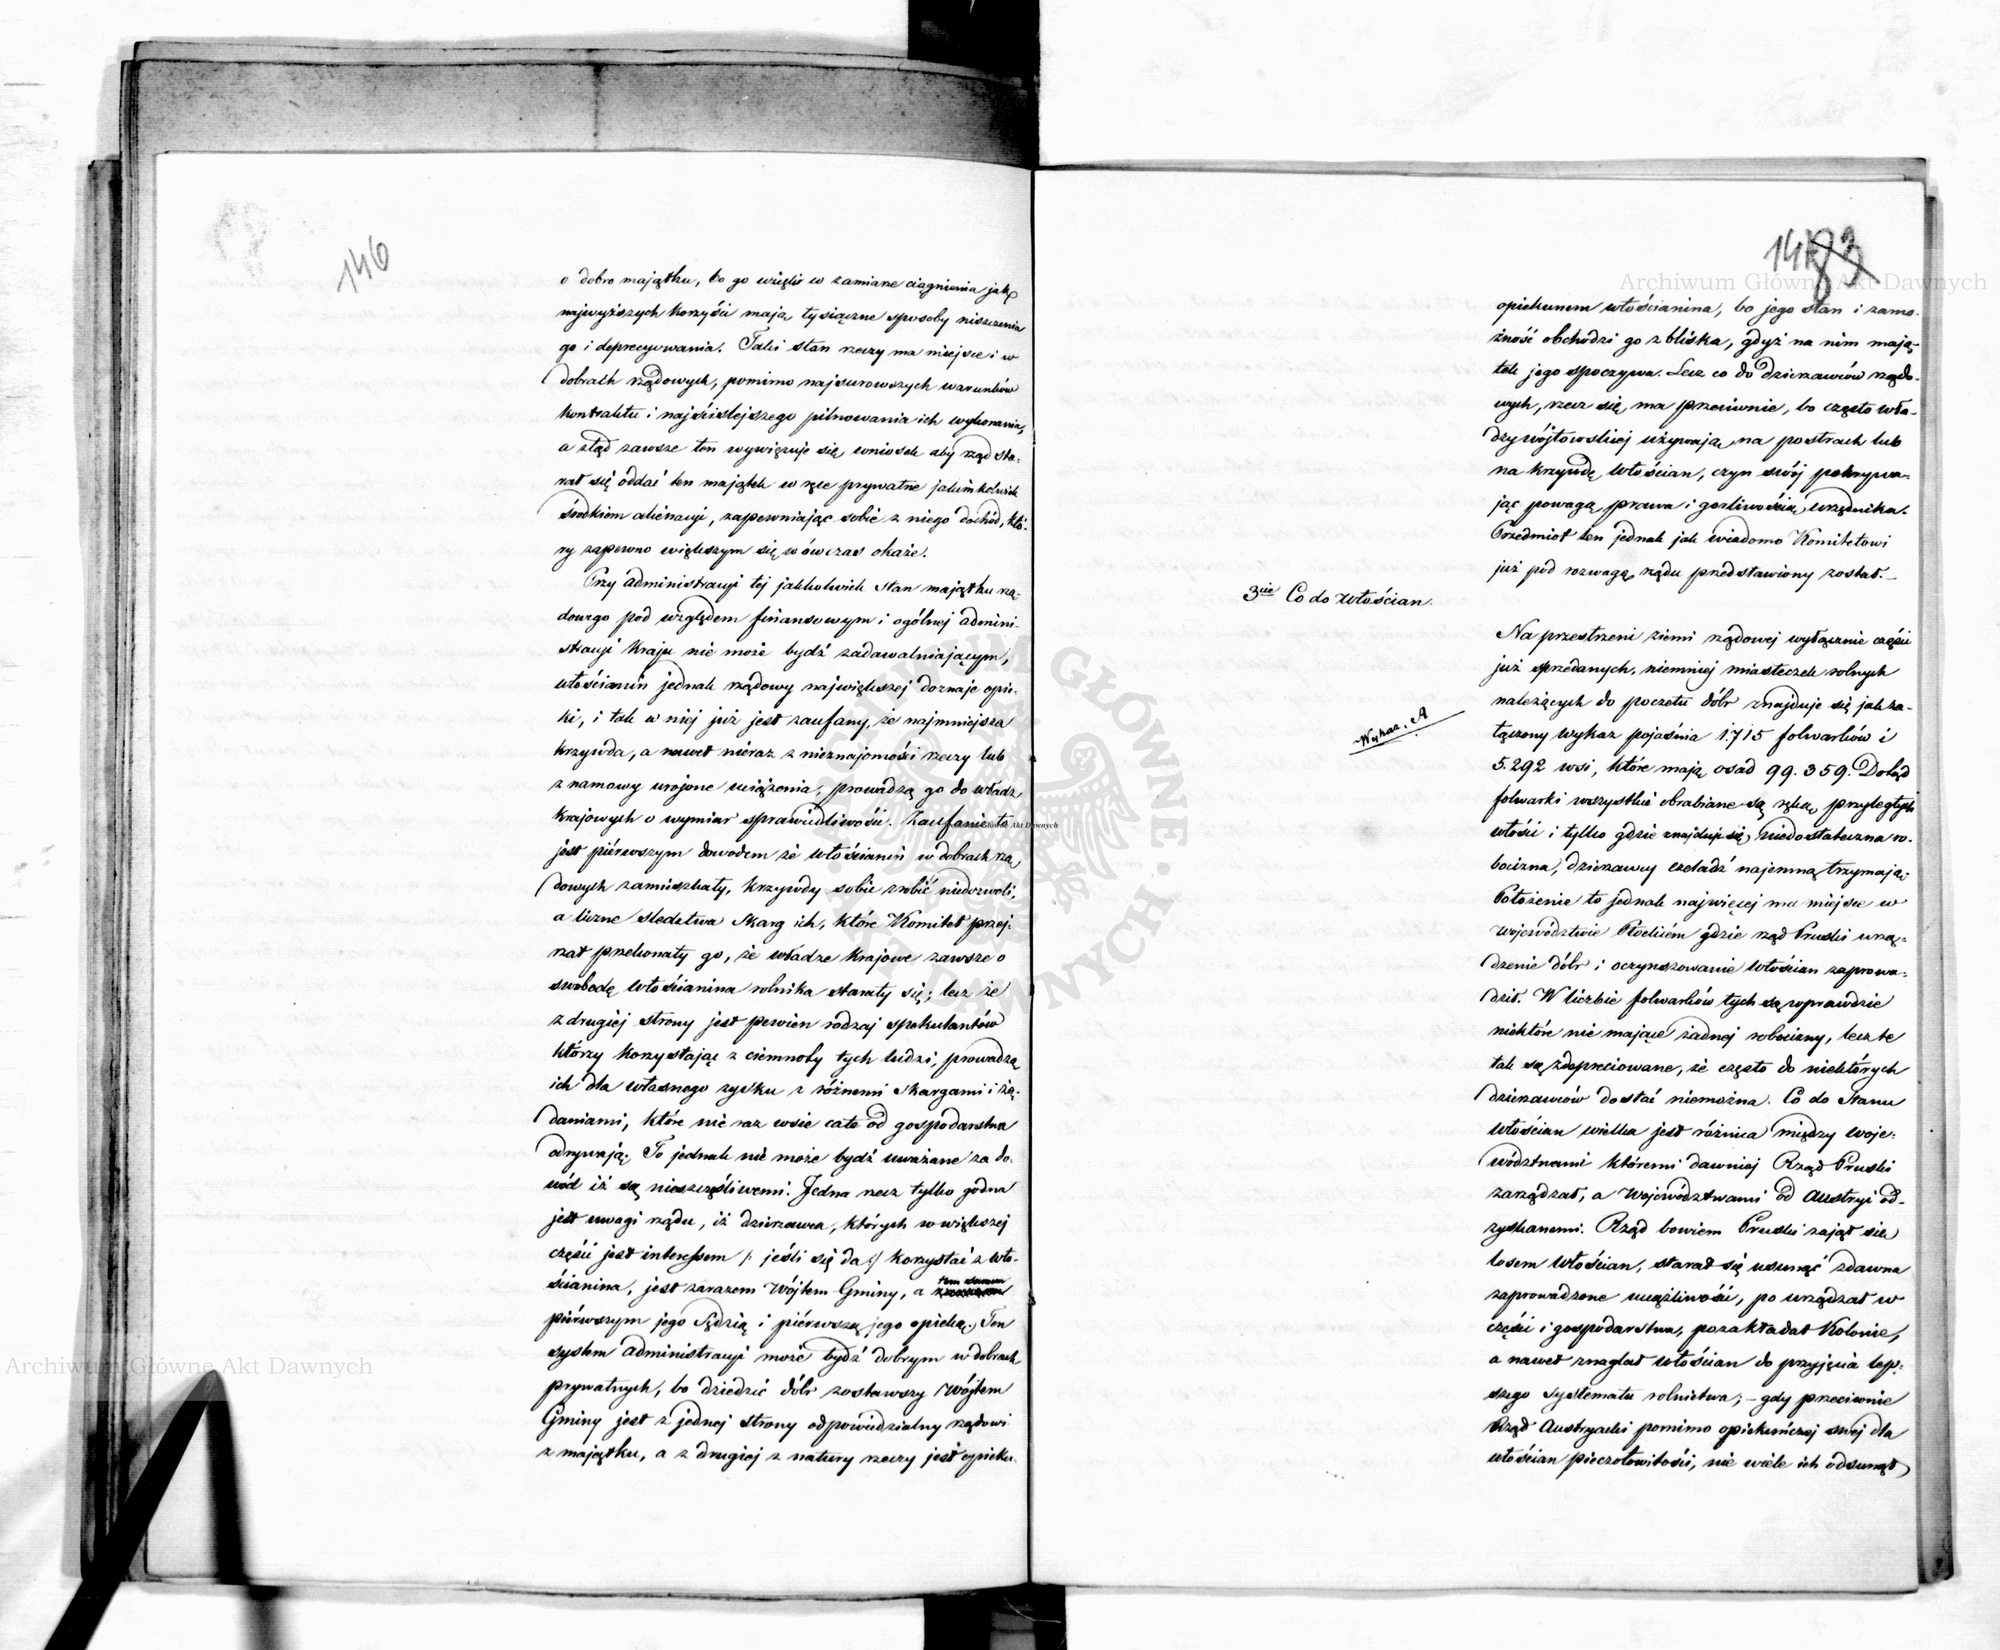 146
o dobro majątku, bo go wzięli w zamiane ciągnienia jak
najwyższych korzyści mają tysiączne sposoby niszczenia
go i deprecyowania. Taki stan rzeczy ma miejsce i w
dobrach rządowych, pomimo najsurowszych warunków
kontraktu i najściślejszego pilnowania ich wykonania,
a ztąd zawsze ten wywięzuje się wniosek aby rząd sta-
rał się oddać ten majątek w ręce prywatne jakimkolwiek
środkiem alienacyi, zapewniając sobie z niego dochód, któ-
ry zapewno większym się wówczas okaże.
Przy administracyi tej jakkolwiek stan majątku rzą-
dowego pod względem finansowym i ogólnej admini-
stracyi Kraju nie może bydź zadawalniającym,
włościanin jednak rządowy największej doznaje opie-
ki, i tak w niej już jest zaufany, że najmniejsza
krzywda, a nawet nieraz z nieznajomości rzeczy lub
z namowy urojone uciążenia, prowadzą go do władz
krajowych o wymiar sprawiedliwości. Zaufanie to
jest piérwszym dowodem że włościanin w dobrach rzą-
dowych zamieszkały, krzywdy sobie zrobić niedozwoli,
a liczne śledztwa skarg ich, które Komitet przej-
rzał przekonały go, że władze krajowe zawsze o
swobodę włościanina rolnika starały się; lecz że
z drugiéj strony jest pewien rodzaj spekulantów
którzy korzystając z ciemnoty tych ludzi, prowadzą
ich dla własnego zysku z różnemi skargami i żą-
daniami, które nie raz wsie całe od gospodarstwa
odrywają. To jednak nie może bydź uważane za do-
wód iż są nieszczęśliwemi. Jedna rzecz tylko godna
jest uwagi rządu, iż dzierżawca, których w większej
części jest interessem /: jeśli się da :/ korzystać z wło-
ścianina, jest zarazem Wójtem Gminy, a tem samem
piérwszym jego Sędzią i piérwszą jego opieką. Ten
system administracyi może bydź dobrym w dobrach
prywatnych, bo dziedzic dóbr zostawszy Wójtem
Gminy jest z jednej strony odpowiedzialny rządowi
z majątku, a z drugiej z natury rzeczy jest opieku-
147 83
opiekunem włościanina, bo jego stan i zamo-
żność obchodzi go zbliska, gdyż na nim mają-
tek jego spoczywa. Lecz co do Dzierżawców rządo-
wych, rzecz się ma przeciwnie, bo często wła-
dzy wójtowskiej używają na postrach lub
na krzywdę włościan, czyn swój pokrywa-
jąc powagą prawa i gorliwością urzędnika.
Przedmiot ten jednak jak wiadomo Komitetowi
już pod rozwagę rządu przedstawiony został. –
3cie Co do włościan.
Na przestrzeni ziemi rządowej wyłącznie części
już sprzedanych, niemniej miasteczek rolnych
należących do pocztu dóbr znajduje się jak za-
Wykaz. A
łączony wykaz pojaśnia 1.715 folwarków i
5.292 wsi, które mają osad 99.359. Dotąd
folwarki wszystkie obrabiane są ręką przyległych
włości i tylko gdzie znajduje się niedostateczna ro-
bocizna, dzierżawcy czeladź najemną trzymają.
Położenie to jednak najwięcej ma miejsce w
Województwie Płockiem gdzie rząd Pruski urzą-
dzenie dóbr i oczynszowanie włościan zaprowa-
dził. W liczbie folwarków tych są wprawdzie
niektóre nie mające żadnej robocizny, lecz te
tak są zdepreciowane, że często do niektórych
dzierżawców dostać niemożna. Co do Stanu
włościan wielka jest różnica między woje-
wództwami któremi dawniej Rząd Pruski
zarządzał, a Województwami od Austryi od-
zyskanemi. Rząd bowiem Pruski zajął się
losem włościan, starał się usunąć zdawna
zaprowadzone uciążliwości, po urządzał w
części i gospodarstwa, pozakładał Kolonie,
a nawet znaglał włościan do przyjęcia lep-
szego systematu rolnictwa; – gdy przeciwnie
Rząd Austryacki pomimo opiekuńczej swej dla
włościan pieczołowitości, nie wiele ich odsunął
Archiwum Główne Akt Dawnych